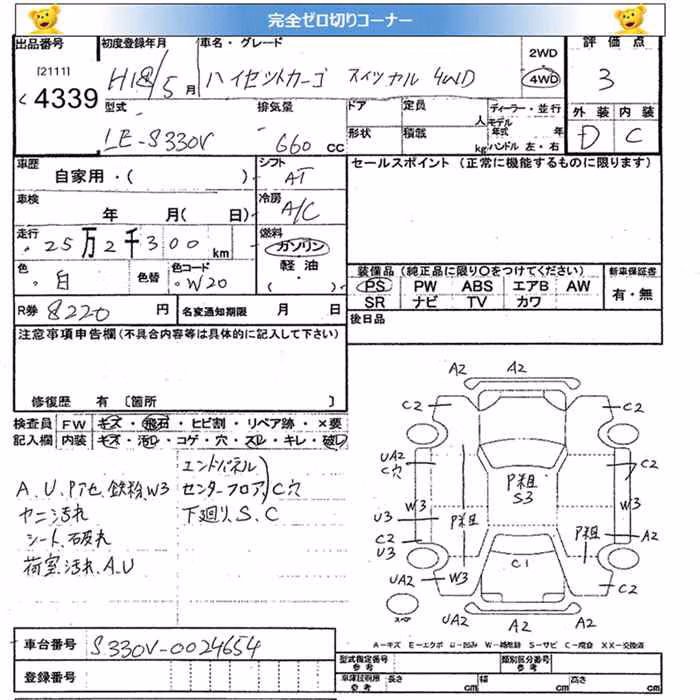 完全ゼロ切りコーナー
出品番号 初度登録年月 車名・グレード 評価点
[2111] H18/5月 ハイゼットカーゴ スペシャル 4WD 2WD
4339 4WD 3
型式 排気量 ドア 定員 ディーラー・並行 外装 内装
LE-S330V 660cc 人 モデル年式 年 D C
形状 積載 kg ハンドル 左・右
車歴 シフト セールスポイント (正常に機能するものに限ります)
自家用・( ) AT
車検 冷房
年 月( 日) A/C
走行 燃料
25万2千300km ガソリン
色 色替 色コード 軽油 装備品 (純正品に限り〇をつけてください) 新車保証書
白 W20 ( ) PS PW ABS エアB AW 有・無
SR ナビ TV カワ
R券 8220円 名変通知期限 月 日 後日品
注意事項申告欄 (不具合内容等は具体的に記入して下さい)
修復歴 有 〔箇所 〕
検査員 FW キズ・飛石・ヒビ割・リペア跡・×要
記入欄 内装 キズ・汚レ・コゲ・穴・スレ・キレ・破レ
エンドパネル
A.U.Pアセ.鉄粉.W3 センターフロア.C穴
ヤニ汚れ 下廻り.S.C
シート.破れ
荷室.汚れ.A.U
A2 A2
C2 C2
UA2
C穴 C2
P粗
S3
W3 W3
U3 P粗 P粗 A2
C2
U3
C1
UA2 W3 C2
スペア UA2 A2 A2
A-キズ E-エクボ U-凹み W-補修跡 S-サビ C-腐食 XX-交換済
車台番号 S330V-0024654
型式指定番号参考 類別区分番号参考
登録番号 車庫証明用参考 長さ cm 幅 cm 高さ cm